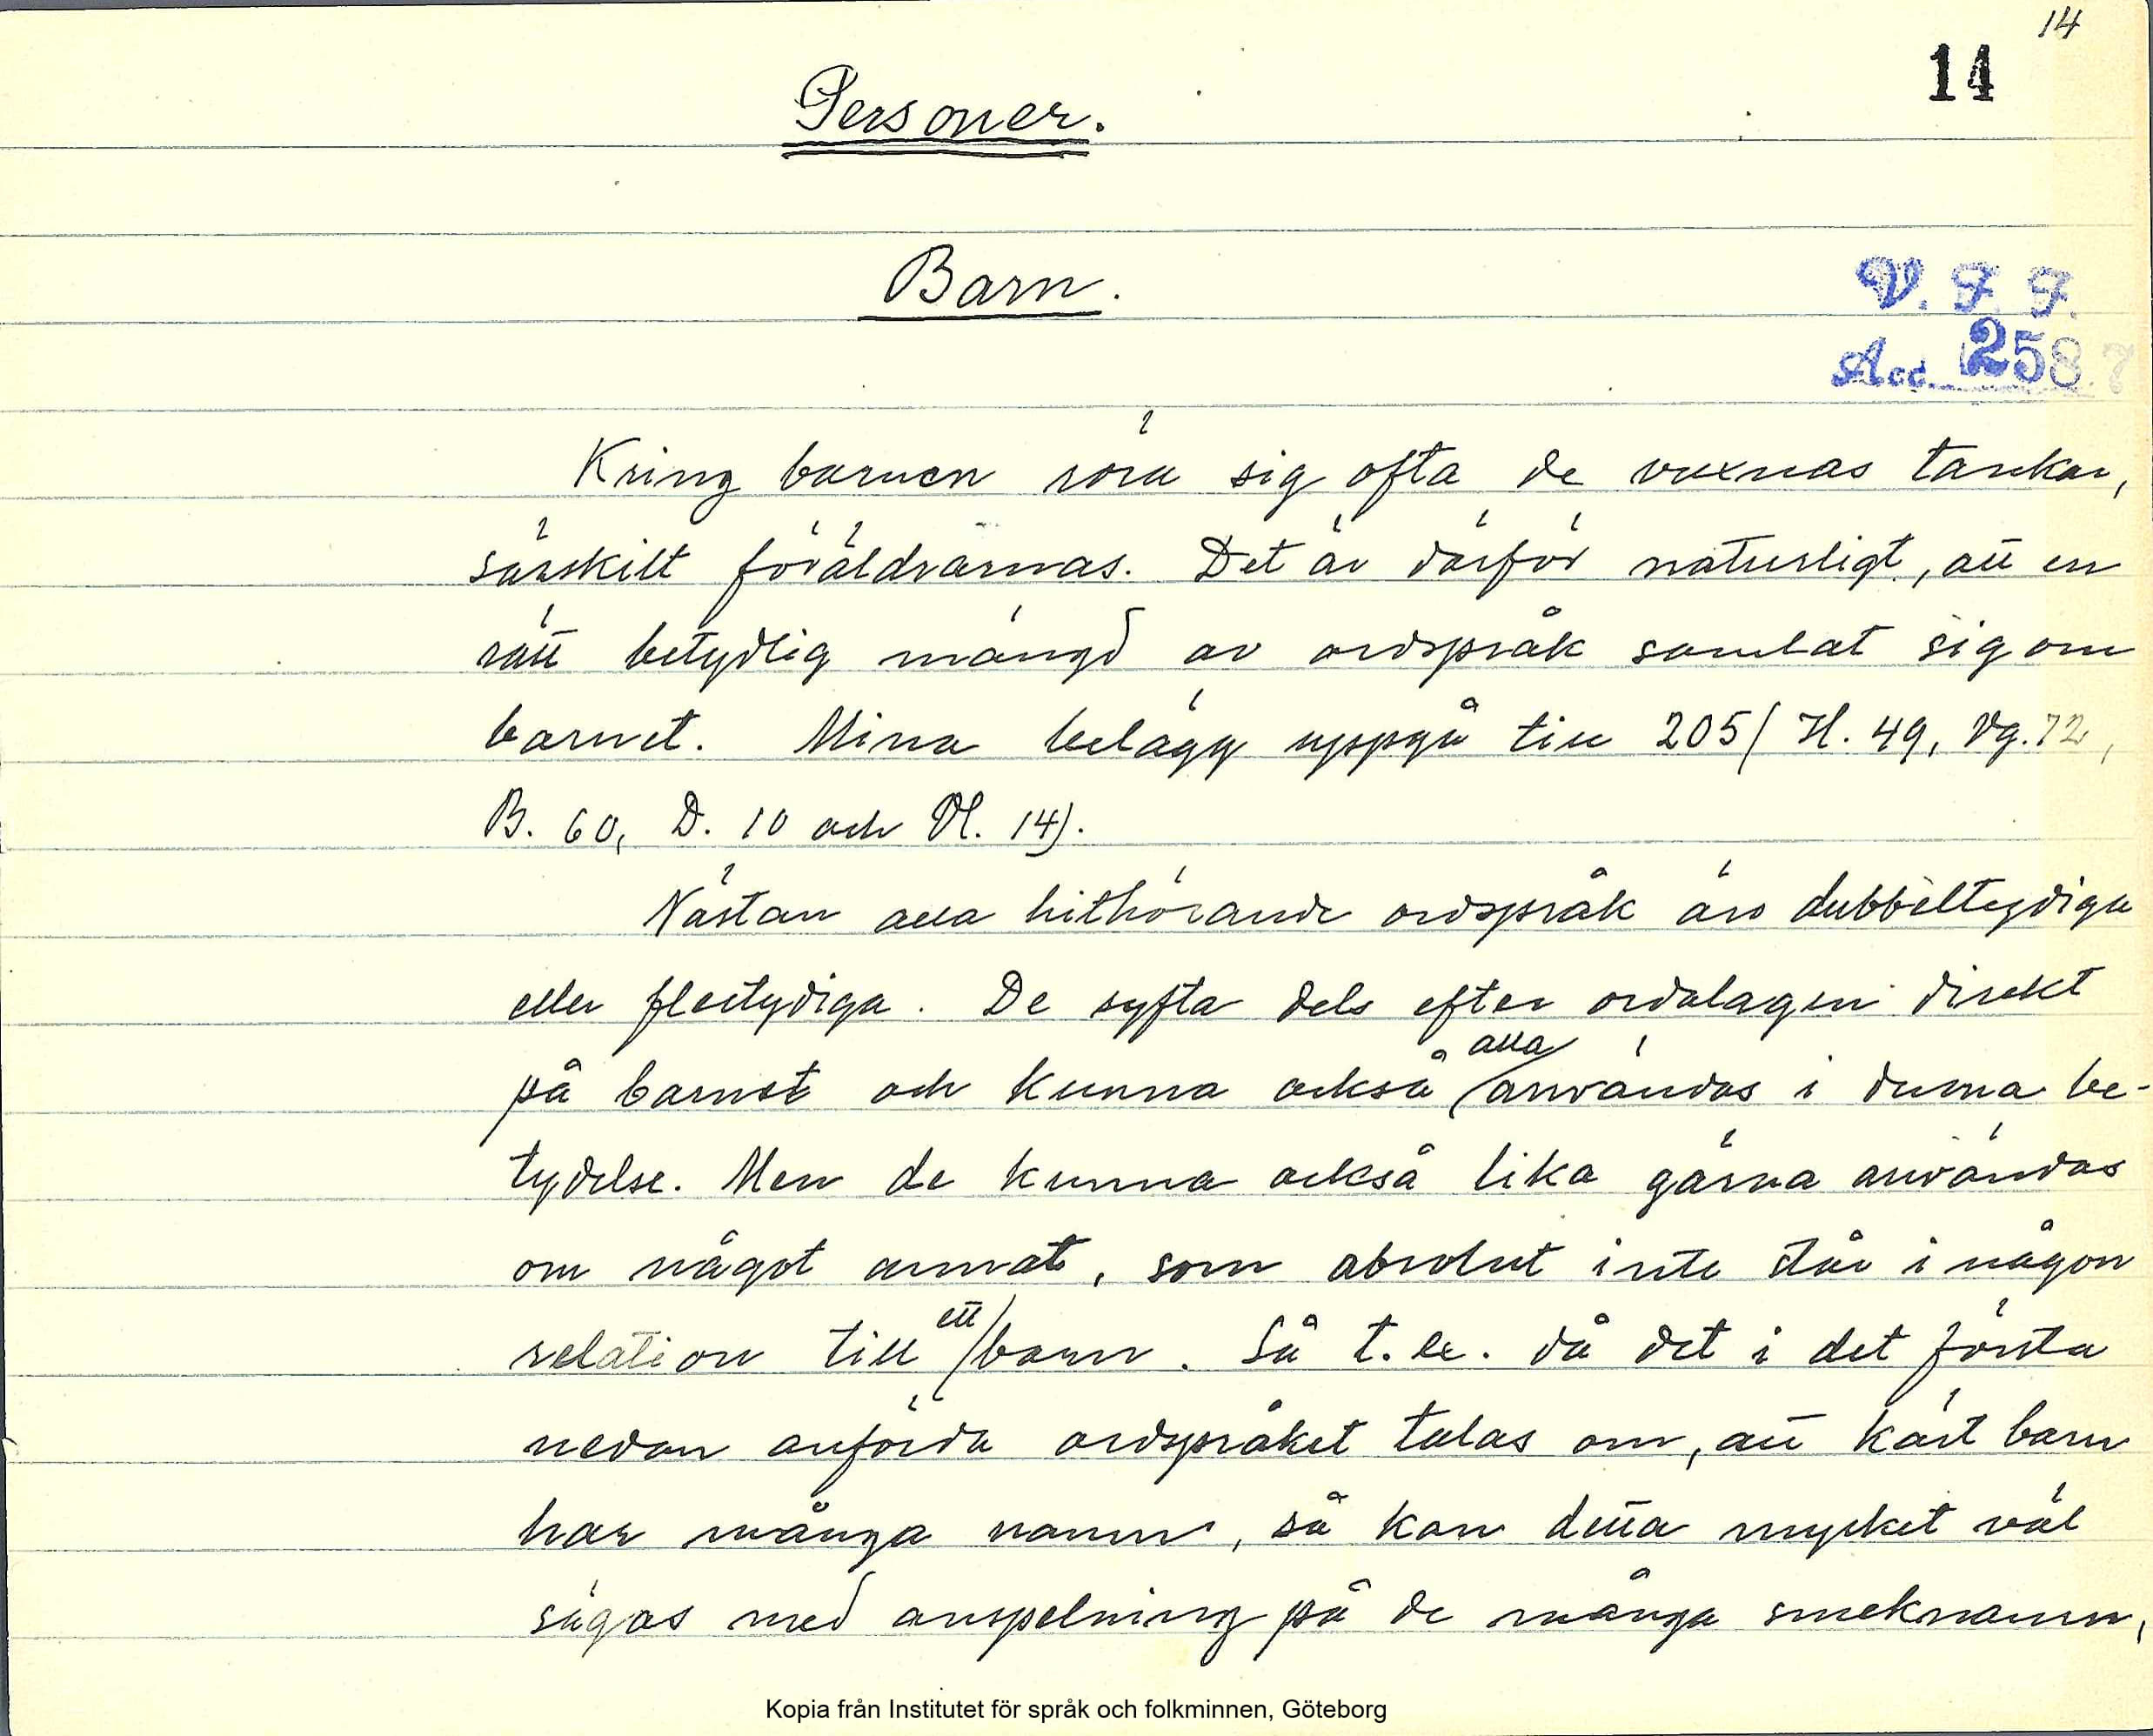 14
14
Personer.
Barn.
V. F. F.
Acc. 2587
Kring barnen röra sig ofta de vuxnas tankar,
särskilt föräldrarnas. Det är därför naturligt, att en
rätt betydlig mängd av ordspråk samlat sig om
barnet. Mina belägg uppgå till 205 (H. 49, Vg. 72,
B. 60, D. 10 och Vl. 14).
Nästan alla hithörande ordspråk äro dubbeltydiga
eller flertydiga. De syfta dels efter ordalagen direkt
på barnet och kunna också alla användas i denna be-
tydelse. Men de kunna också lika gärna användas
om något annat, som absolut inte står i någon
relation till ett barn. Så t. ex. då det i det första
nedan anförda ordspråket talas om, att kärt barn
har många namn, så kan detta mycket väl
sägas med anspelning på de många smeknamn,
Kopia från Institutet för språk och folkminnen, Göteborg